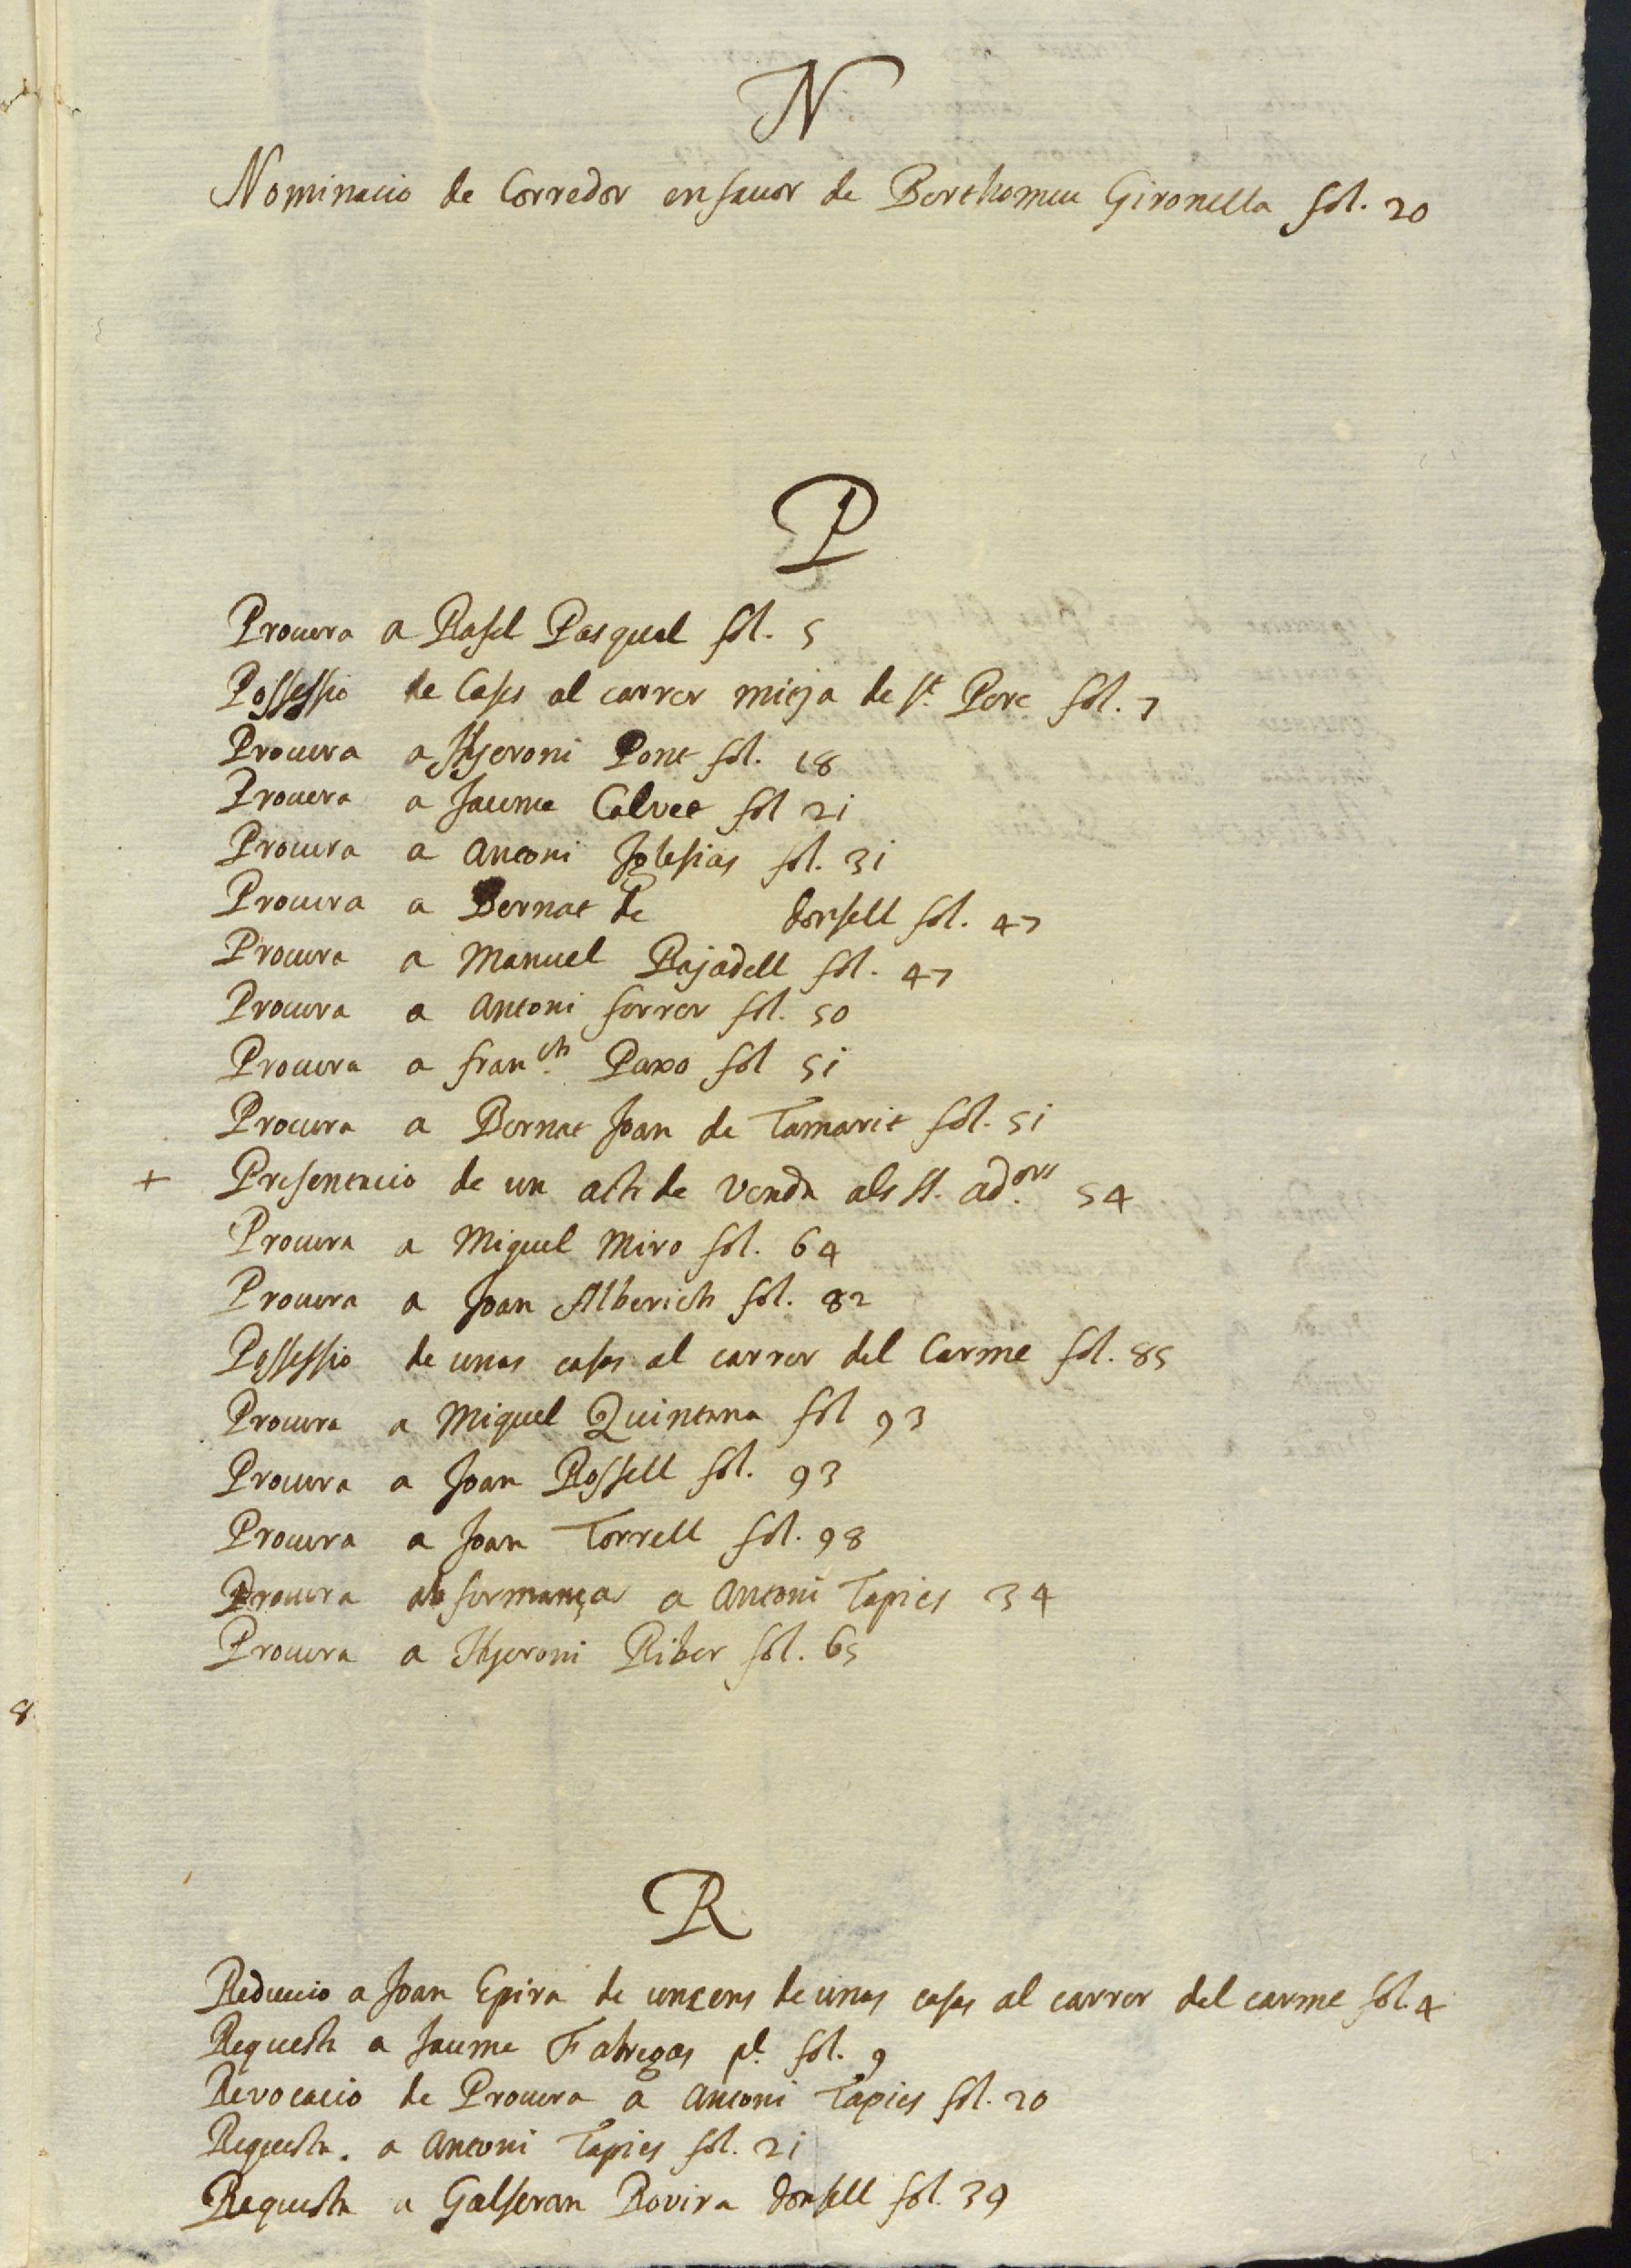 N
Nominacio de Corredor en favor de Berthomeu Gironella fol. 20
P
Procura a Rafel Pasqual fol. 5
Possessio de Cases al carrer mieja de St. Pere fol. 7
Procura a Hyeroni Pont fol. 18
Procura a Jaume Calvet fol 21
Procura a Antoni Iglesias fol. 31
Procura a Bernat de donsell fol. 47
Procura a Manuel Rajadell fol. 47
Procura a Antoni ferrer fol. 50
Procura a Fran.ch Paxo fol 51
Procura a Bernat Joan de Tamarit fol. 51
+ Presentacio de un acte de venda als SS. ad.ors 54
Procura a Miquel Miro fol. 64
Procura a Joan Alberich fol. 82
Possessio de unas casas al carrer del Carme fol. 85
Procura a Miquel Quintana fol 93
Procura a Joan Rossell fol. 93
Procura a Joan Torrell fol. 98
Procura ab fermança a Antoni Tapies 34
Procura a Hyeroni Riber fol. 65
8
R
Reduccio a Joan Epira de un cens de unas casas al carrer del carme fol. 4
Requesta a Jaume Fabregas pl. fol. 9
Revocacio de Procura a Antoni Tapies fol. 20
Requesta. a Antoni Tapies fol. 21
Requesta a Galseran Rovira donsell fol. 39